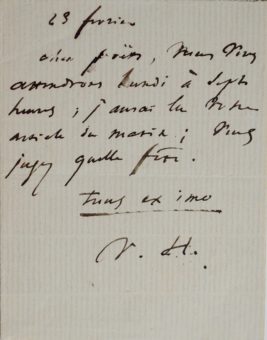 23 février
cher poëte, nous vous
attendrons lundi à sept
heures ; j'aurai lu votre
article du matin ; vous
jugez quelle
tuus ex imo
V. H.